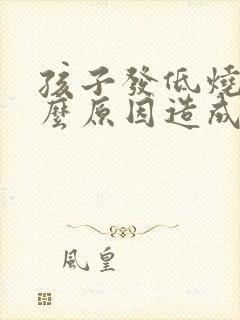 孩子發低燒
麼原因造成
風皇